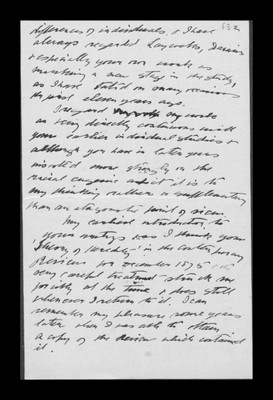 differences of individuals, & I have
always regarded Haycraft's, Darwin's
& especially your own work as
marking a new step in the study,
as I have stated on many occasions
the first eleven years ago.
I regard my work
as very directly continuous with
your earlier individual studies &
although you have in later years
more strongly in the
racial it is to
my thinking rather a supplementary
than an antagonistic point of view.
My earliest introduction to
your writings was I think your
"Theory of Heredity" in the Contemporary
Review for December 1875
very careful treatment struck me
forcibly at the time & does still
whenever I return to it. I can
remember my pleasure some years
later when I was able to obtain
a copy of the Review which contained
it.